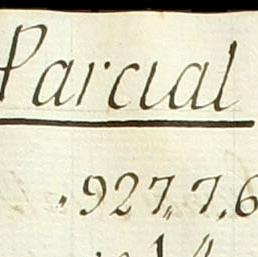 Parcial
"927,,7,6